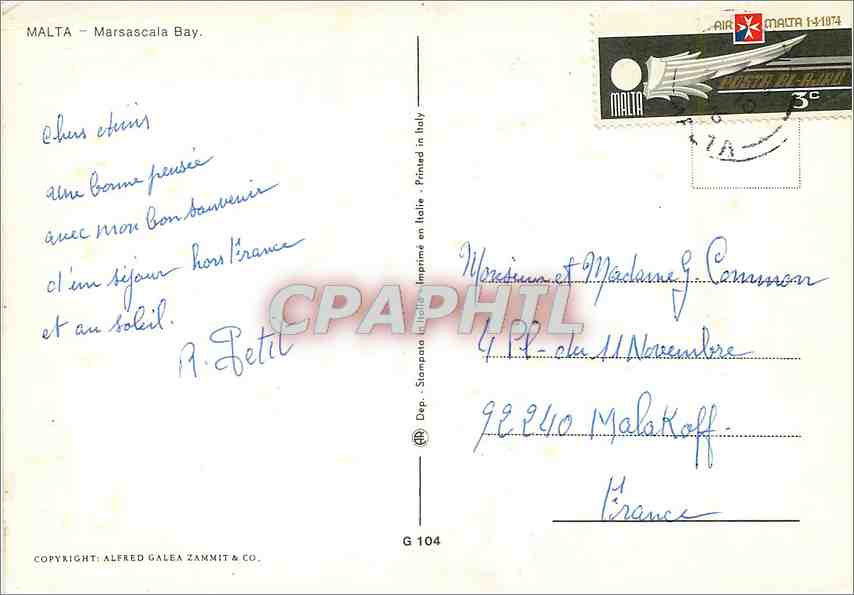 MALTA – Marsascala Bay.
AIR MALTA 1·4·1974
POSTA BL-AJRU
MALTA
3c
Chers amis
une bonne pensée
avec mon bon souvenir
d'un séjour hors France
et au soleil.
R. Petit
Dep. - Stampato in Italia - Imprimé en Italie - Printed in Italy
CPAPHIL
Monsieur et Madame G. Common
4 Pl- du 11 Novembre
92240 Malakoff-
France
G 104
COPYRIGHT: ALFRED GALEA ZAMMIT & CO.